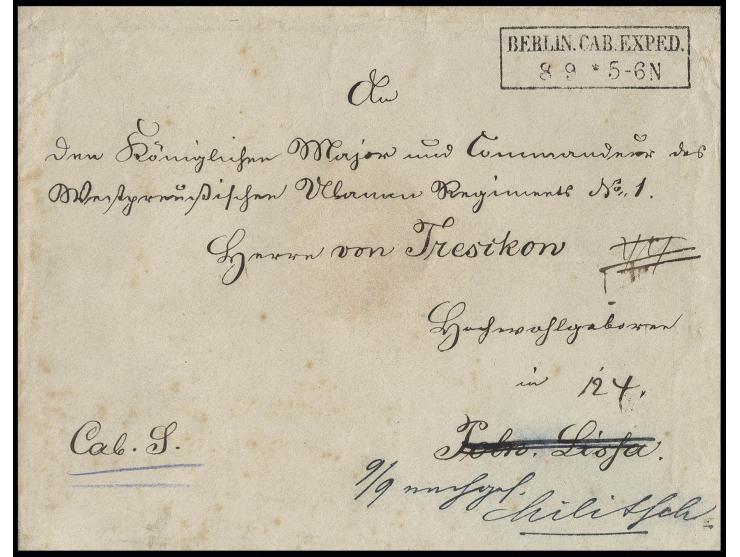 BERLIN. CAB. EXPED.
8 9 * 5-6 N
An
den Königlichen Major und Commandeur des
Westpreußischen Ulanen Regiments No. 1.
Herrn von Tresckow
Hochwohlgeboren
in 124.
Cab. S.
Poln. Lissa.
9/9 nachges.
Militsch